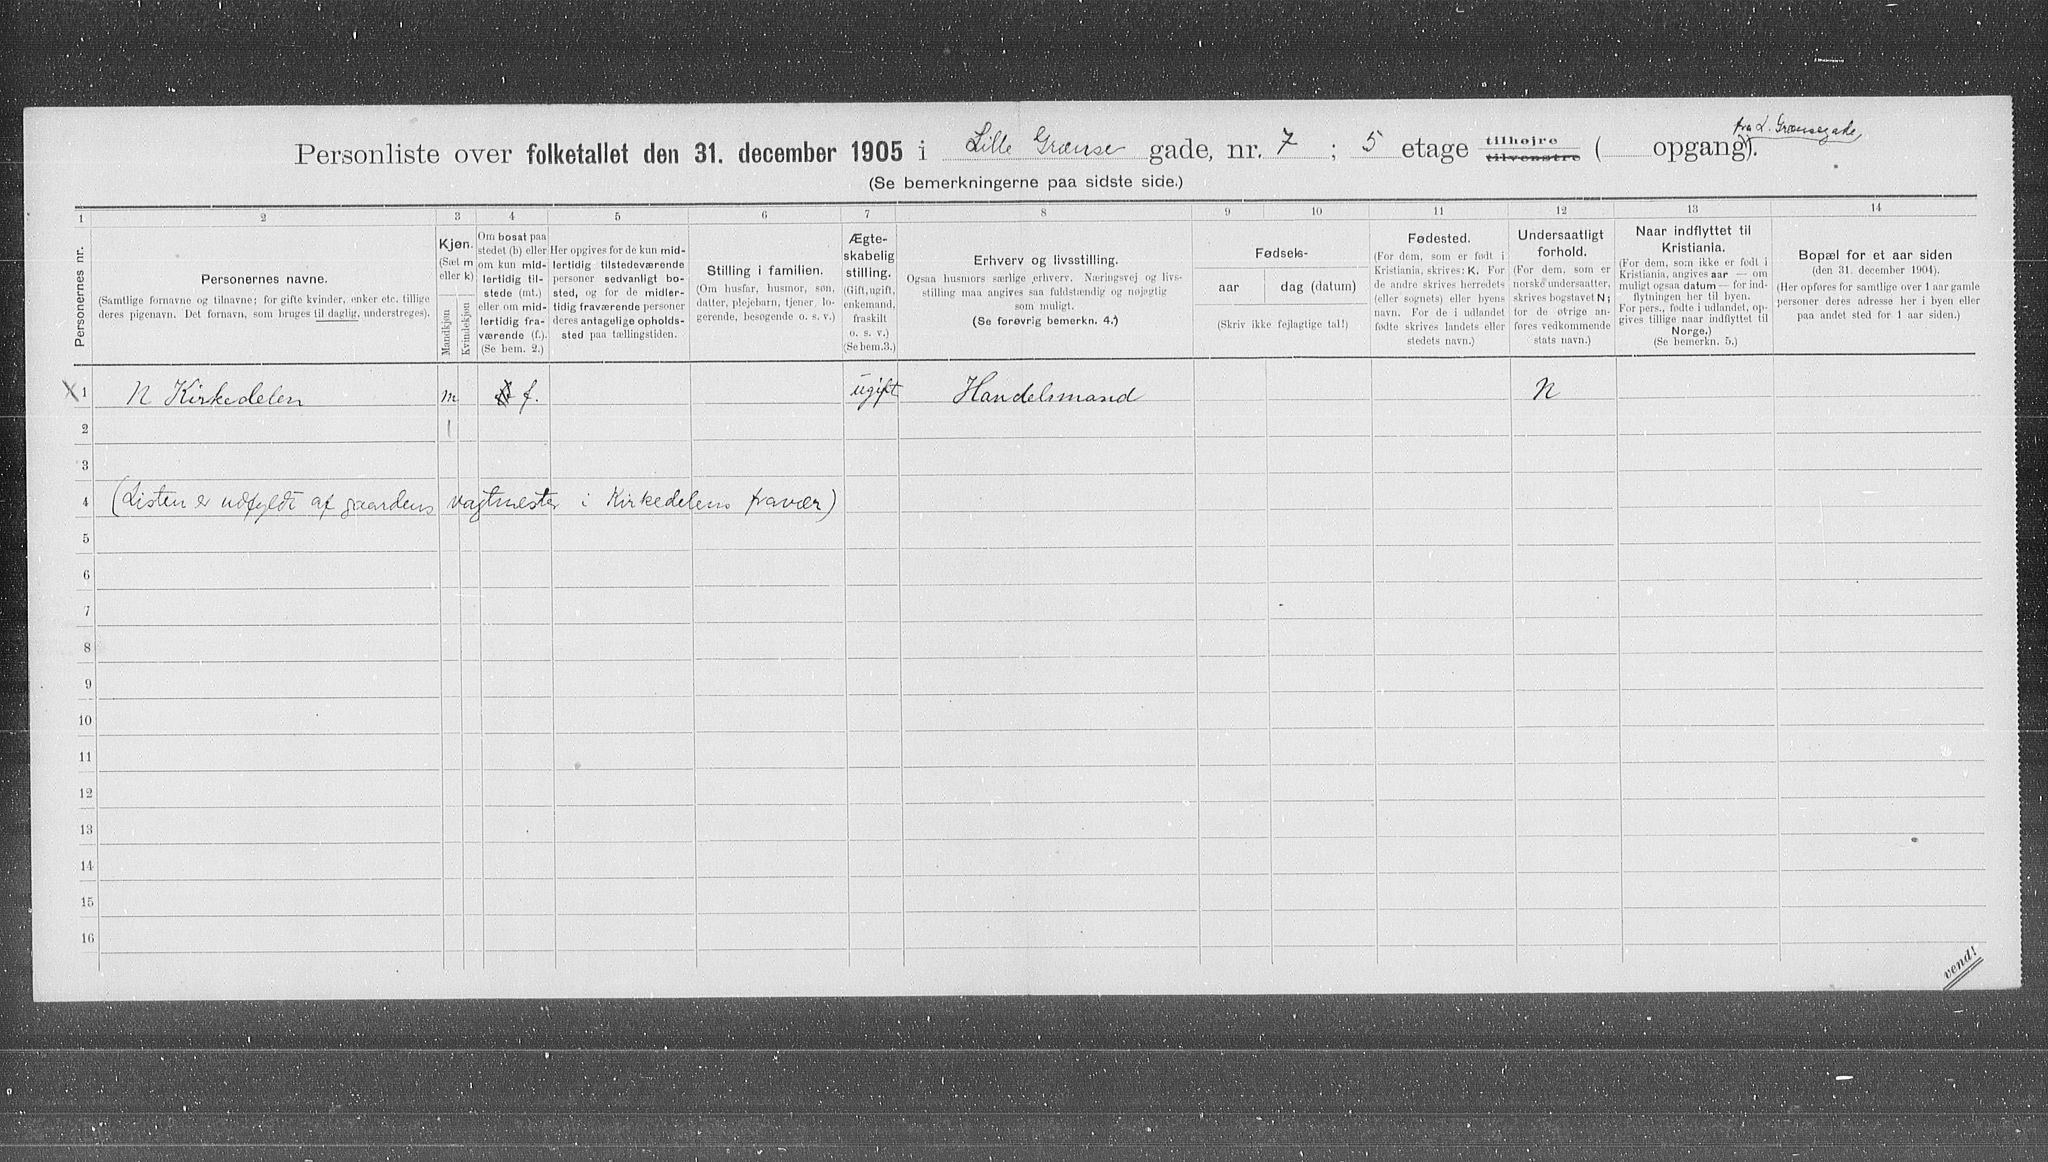 fra L. Grænsegade
Personliste over folketallet den 31. december 1905 i Lille Grænse gade, nr. 7 ; 5 etage tilhøjre tilvenstre ( opgang).
(Se bemerkningerne paa sidste side.)
1 2 3 4 5 6 7 8 9 10 11 12 13 14
Personernes nr.
Personernes navne.
(Samtlige fornavne og tilnavne; for gifte kvinder, enker etc. tillige
deres pigenavn. Det fornavn, som bruges til daglig, understreges).
Kjøn.
(Sæt m
eller k)
Mandkjøn
Kvindekjøn
Om bosat paa
stedet (b) eller
om kun mid-
lertidig til-
stede (mt.)
eller om mid-
lertidig fra-
værende (f.).
(Se bem. 2.)
Her opgives for de kun mid-
lertidig tilstedeværende
personer sedvanligt bo-
sted, og for de midler-
tidig fraværende personer
deres antagelige opholds-
sted paa tællingstiden.
Stilling i familien.
(Om husfar, husmor, søn,
datter, plejebarn, tjener, lo-
gerende, besøgende o. s. v.)
Ægte-
skabelig
stilling.
(Gift, ugift,
enkemand,
fraskilt
o. s. v.)
(Se bem. 3.)
Erhverv og livsstilling.
Ogsaa husmors særlige erhverv. Næringsvej og livs-
stilling maa angives saa fuldstændig og nøjagtig
som muligt.
(Se forøvrig bemerkn. 4.)
Fødsels-
aar dag (datum)
(Skriv ikke fejlagtige tal!)
Fødested.
(For dem, som er født i
Kristiania, skrives: K. For
de andre skrives herredets
(eller sognets) eller byens
navn. For de i udlandet
fødte skrives landets eller
stedets navn.)
Undersaatligt
forhold.
(For dem, som er
norske undersaatter,
skrives bogstavet N;
for de øvrige an-
føres vedkommende
stats navn.)
Naar indflyttet til
Kristiania.
(For dem, som ikke er født i
Kristiania, angives aar — om
muligt ogsaa datum — for ind-
flytningen her til byen.
For pers., fødte i udlandet, op-
gives tillige naar indflyttet til
Norge.)
(Se bemerkn. 5.)
Bopæl for et aar siden
(den 31. december 1904).
(Her opføres for samtlige over 1 aar gamle
personer deres adresse her i byen eller
paa andet sted for 1 aar siden.)
X 1 N Kirkedelen m f. ugift Handelsmand N
2 1
3
4 (Listen er udfyldt af gaardens vagtmester i Kirkedelens fravær)
5
6
7
8
9
10
11
12
13
14
15
16
vend!